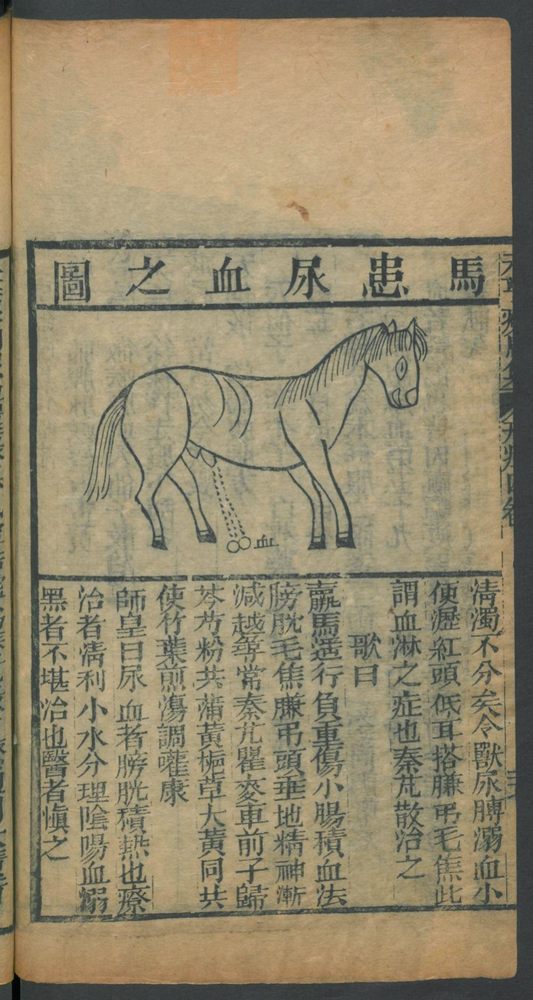 馬患尿血之圖
血
清濁不分矣令獸尿脬溺血小
便瀝紅頭低耳搭臁吊毛焦此
謂血淋之症也秦艽散治之
歌曰
羸馬遠行負重傷小腸積血法
膀胱毛焦臁吊頭垂地精神漸
減越尋常秦艽瞿麥車前子歸
芩芍粉共蒲黃梔草大黃同共
使竹葉煎湯調嚾康
師皇曰尿血者膀胱積熱也療
治者淸利小水分理隂陽血溺
黑者不堪治也醫者愼之